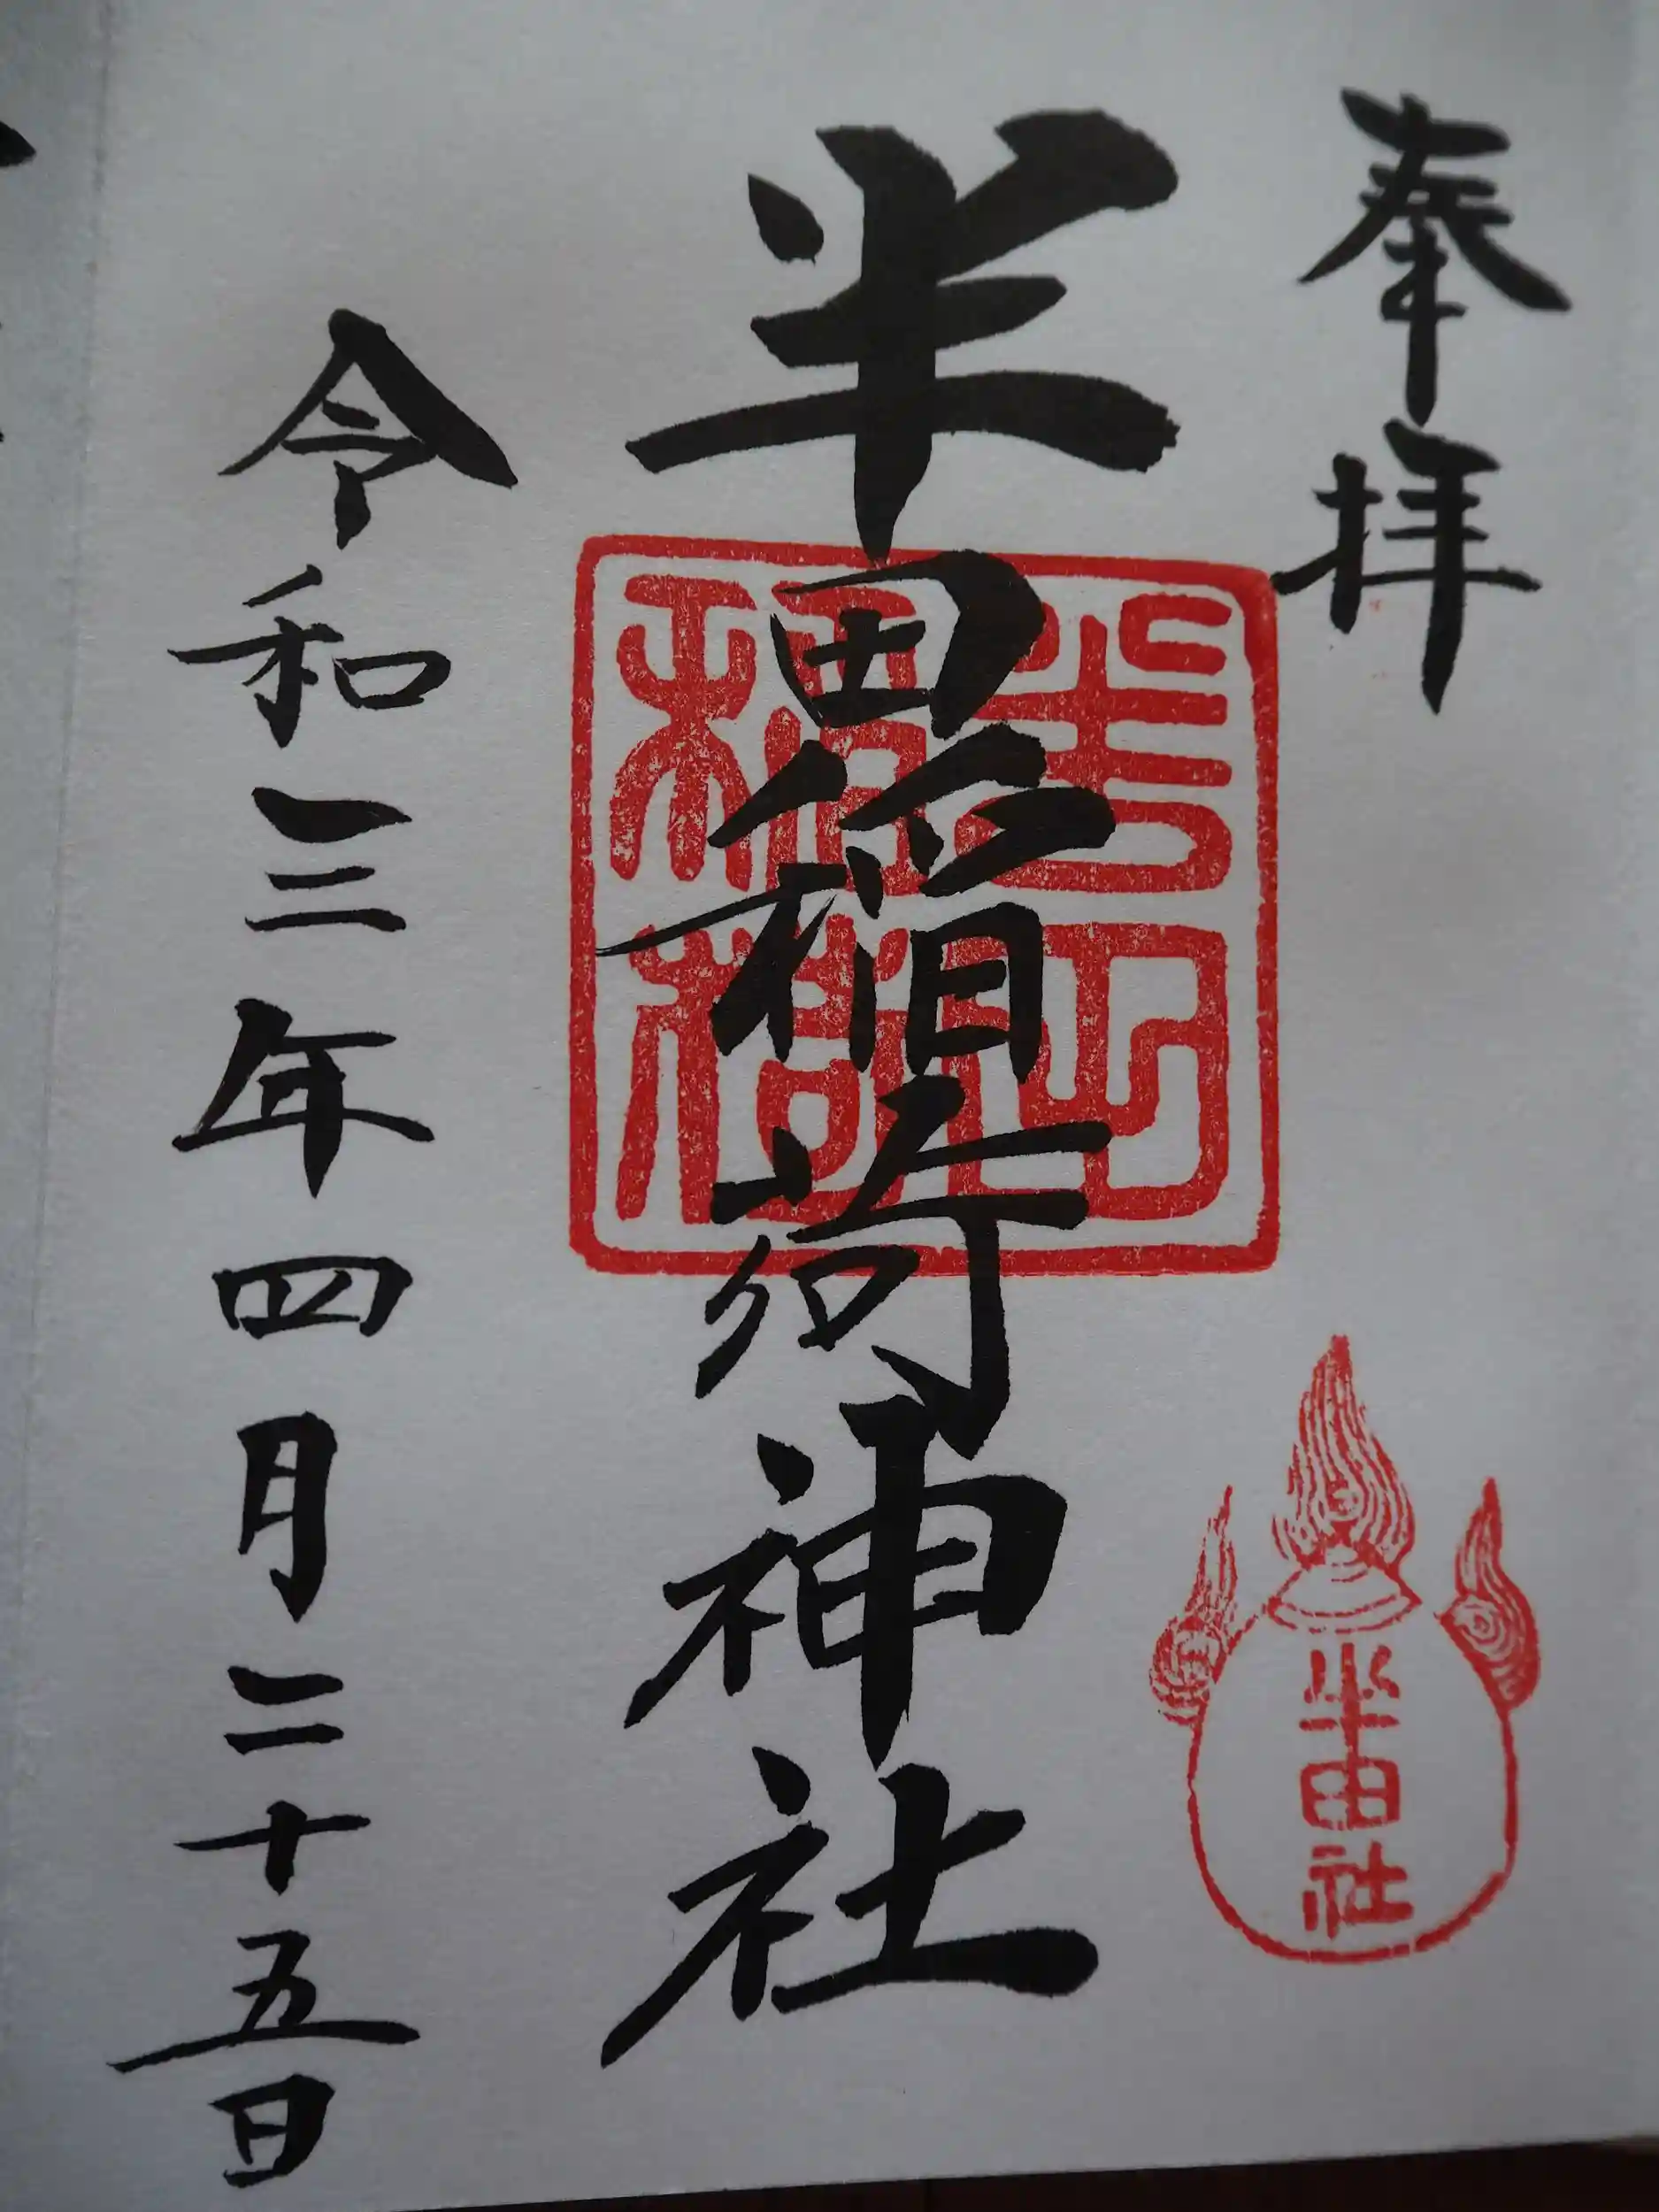 奉拝
半田社
半田稲荷神社
令和三年四月二十五日